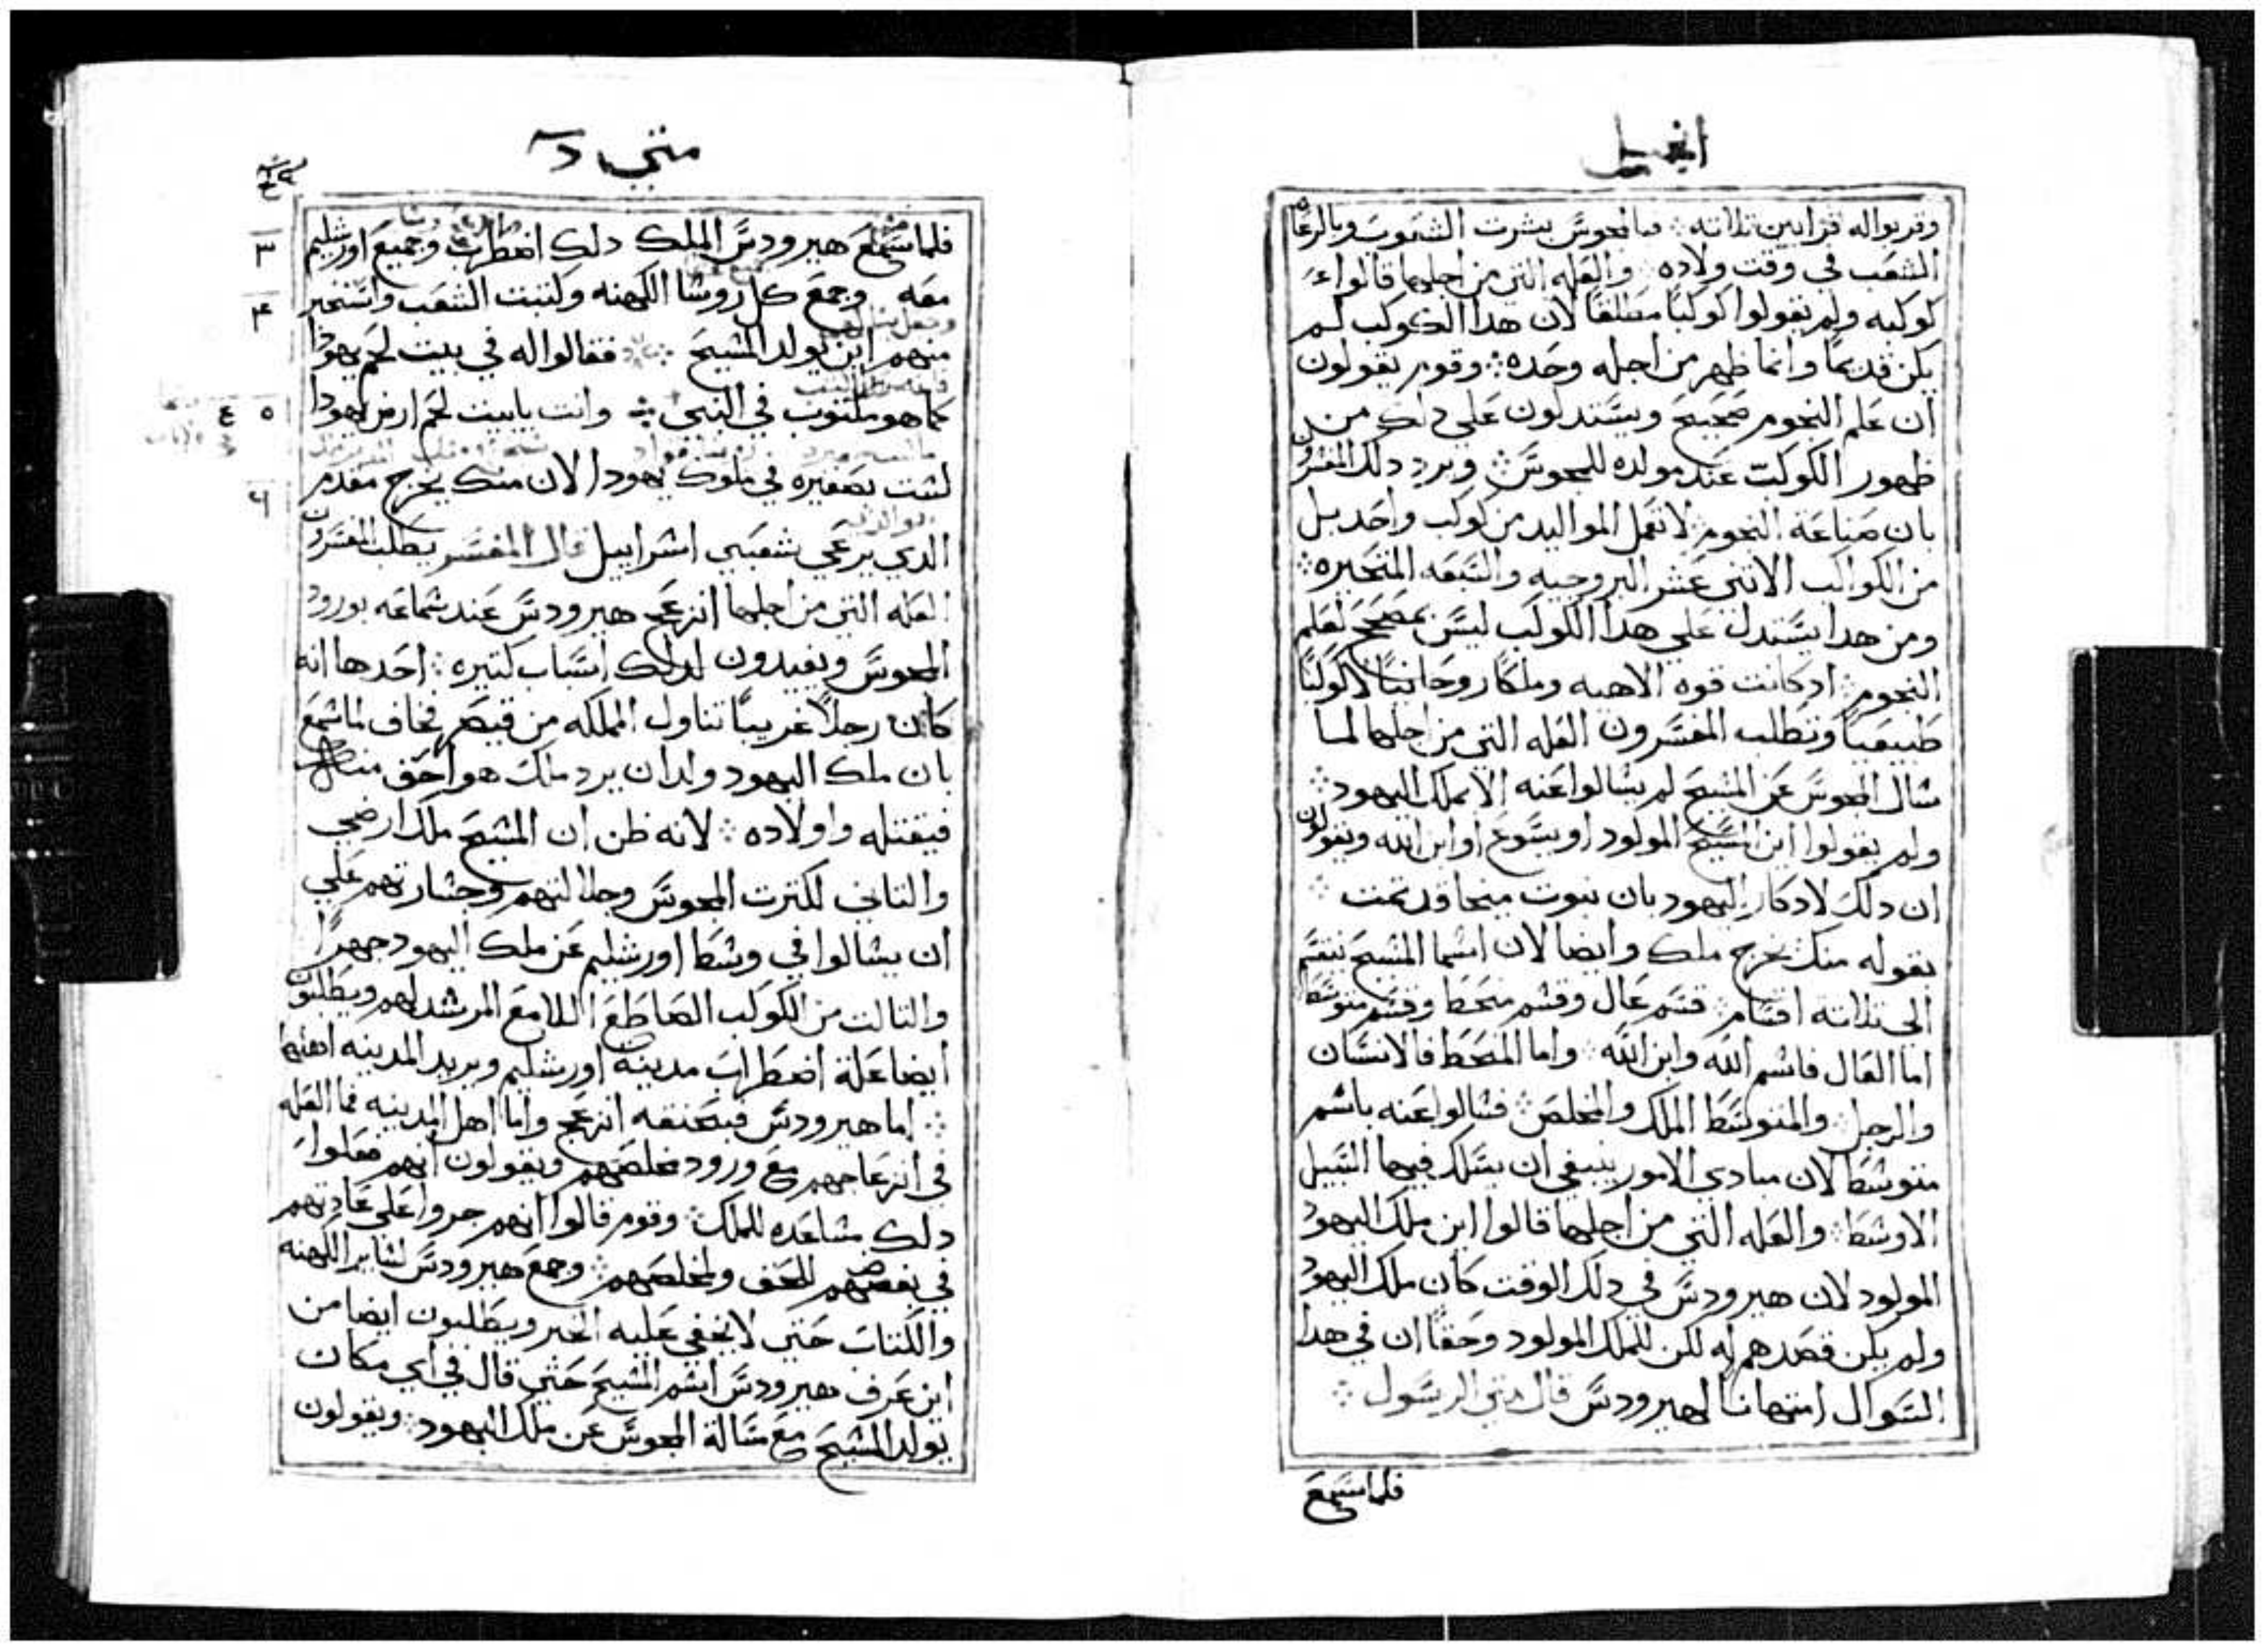 انجيل
وقربوا له قرابين تلاته ∴ فبالمجوس بشرت الشعوب وبالرعاه
الشعب في وقت ولاده ∴ والعله التي من اجلها قالوا
كوكبه ولم يقولوا كوكبًا مطلقًا لان هدا الكوكب لم
يكن قديمًا وانما ظهر من اجله وحده ∴ وقوم يقولون
ان علم النجوم صحيح ويستدلون علي دلك من
ظهور الكوكب عند مولده للمجوس ∴ ويرد دلك المفسرون
بان صناعة النجوم لا تعمل المواليد من كوكب واحد بل
من الكواكب الاتنى عشر البروجيه والسبعه المتحيره ∴
ومن هدا يستدل علي هدا الكوكب ليس بمصحح لعلم
النجوم ∴ اد كانت قوه الاهيه وملكًا روحانيًا لا كوكبًا
طبيعيًا وتطلب المفسرون العله التي من اجلها لما
سال المجوس عن المسيح لم يسالوا عنه الا بملك اليهود ∴
ولم يقولوا اين المسيح المولود او يسوع او ابن الله ويقولون
ان دلك لادكار اليهود بان نبوت ميخا قد تمت ∴
بقوله منك يخرج ملك وايضا لان اسما المسيح تنقسم
الى تلاتة اقسام ∴ قسم عال وقسم منحط وقسم متوسط
اما العال فاسم الله وابن الله ∴ واما المنحط فالانسان
والرجل ∴ والمتوسط الملك والمخلص ∴ فسالوا عنه باسم
متوسط لان مبادي الامور ينبغي ان يسلك فيها السبيل
الاوسط ∴ والعله التي من اجلها قالوا اين ملك اليهود
المولود لان هيرودس في دلك الوقت كان ملك اليهود
ولم يكن قصدهم له لكن للملك المولود وحقًا ان في هدا
السوال امتهانا لهيرودس قال متى الرسول ∴
فلما سمع
متي د
فلما سمع هيرودس الملك دلك اضطرب وجميع اورشليم
معه وجمع كل روسا الكهنه وكتبت الشعب واستخبر
منهم اين يولد المسيح ∴ فقالوا له في بيت لحم يهودا
كما هو مكتوب في النبي ∴ وانت يا بيت لحم ارض يهودا
لست بصغيره في ملوك يهودا لان منك يخرج مقدم
الدي يرعي شعبي اسراييل قال المفسر يطلب المفسرون
العله التي من اجلها انزعج هيرودس عند سماعه بورود
المجوس ويفيدون لدلك اسباب كتيره ∴ احدها انه
كان رجلًا غريبًا تناول المملكه من قيصر فخاف لما سمع
بان ملك اليهود ولد ان يرد ملك هو احق منه
فيقتله واولاده ∴ لانه ظن ان المسيح ملك ارضي
والتاني لكترت المجوس وجلالتهم وجسارتهم علي
ان يسالوا في وسط اورشليم عن ملك اليهود جهرًا
والتالت من الكوكب الصاطع اللامع المرشد لهم ويطلبون
ايضا علة اضطراب مدينة اورشليم ويريد المدينه اهلها
∴ اما هيرودس فبحنقه انزعج واما اهل المدينه فما العله
في انزعاجهم مع ورود مخلصهم ويقولون انهم فعلوا
دلك مساعده للملك ∴ وقوم قالوا انهم جروا علي عادتهم
في بغضهم للحق ولمخلصهم ∴ وجمع هيرودس لساير الكهنه
والكتاب حتي لا يخفي عليه الخبر ويطلبون ايضا من
اين عرف هيرودس اسم المسيح حتي قال في اي مكان
يولد المسيح مع مسالة المجوس عن ملك اليهود ∴ ويقولون
٣
۴
٥
۶